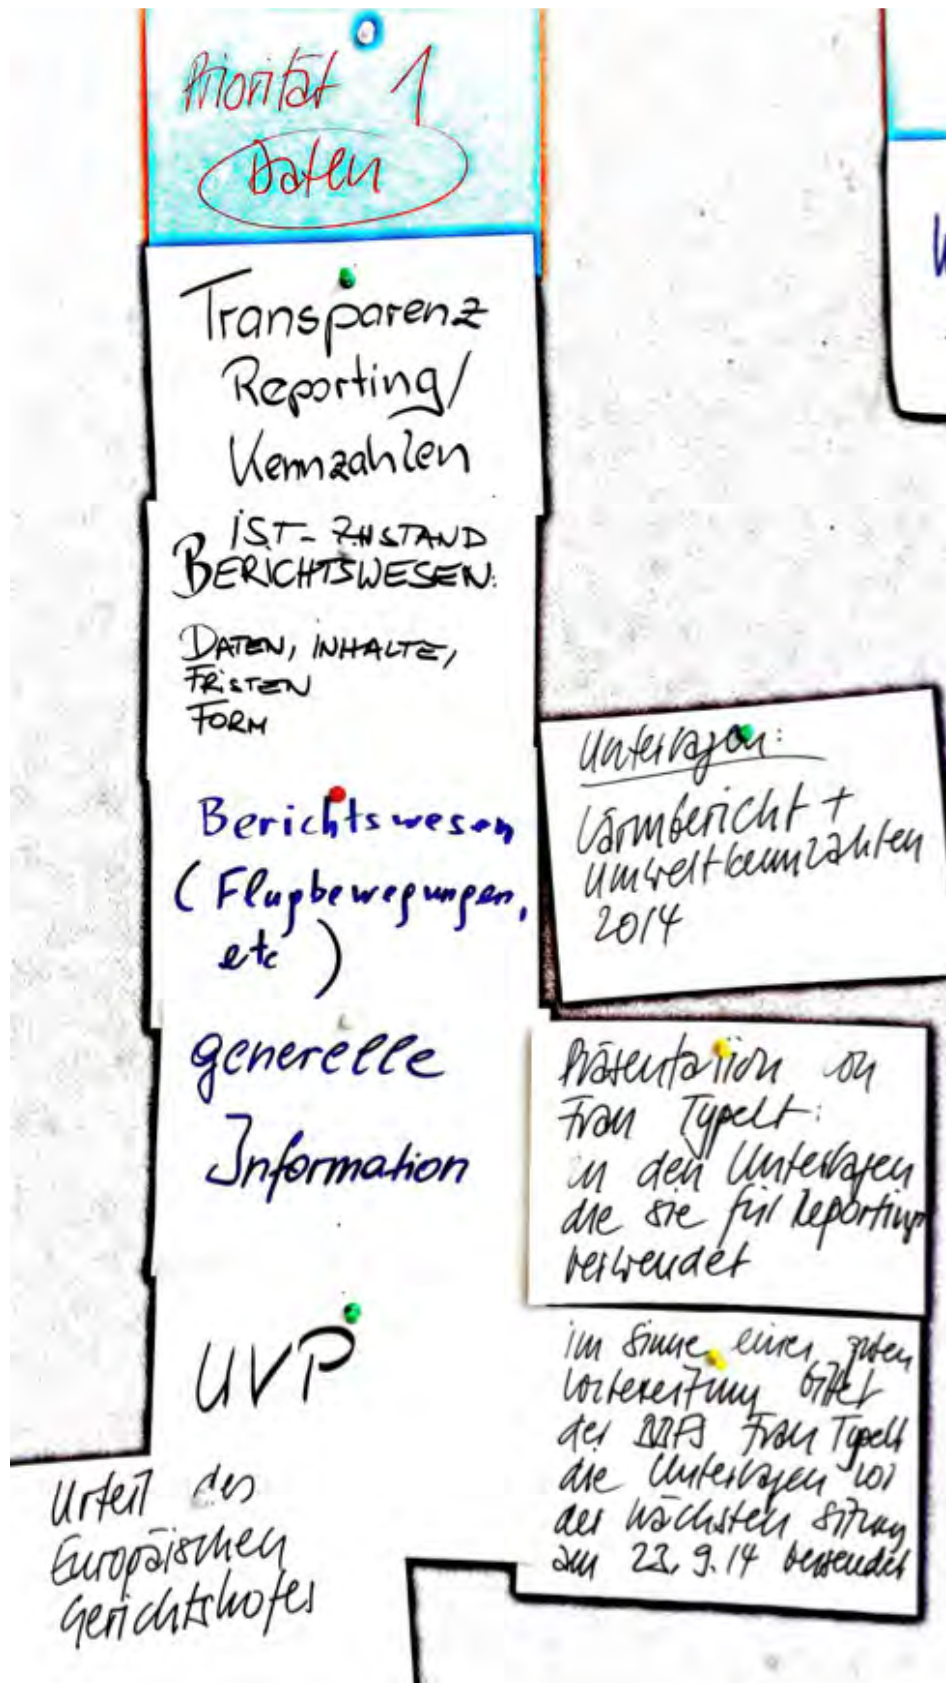 Priorität 1
Daten
Transparenz
Reporting/
Kennzahlen
IST-ZUSTAND
BERICHTSWESEN:
DATEN, INHALTE,
FRISTEN
FORM
Berichtswesen
(Flugbewegungen,
etc)
generelle
Information
UVP
Urteil des
Europäischen
Gerichtshofes
Unterlagen:
Lärmbericht +
Umweltkennzahlen
2014
Präsentation
Frau Typelt:
in den Unterlagen
die sie für Reporting
verwendet
im Sinne einer guten
Vorbereitung bittet
der Frau Typelt
die Unterlagen vor
der nächsten Sitzung
am 23.9.14